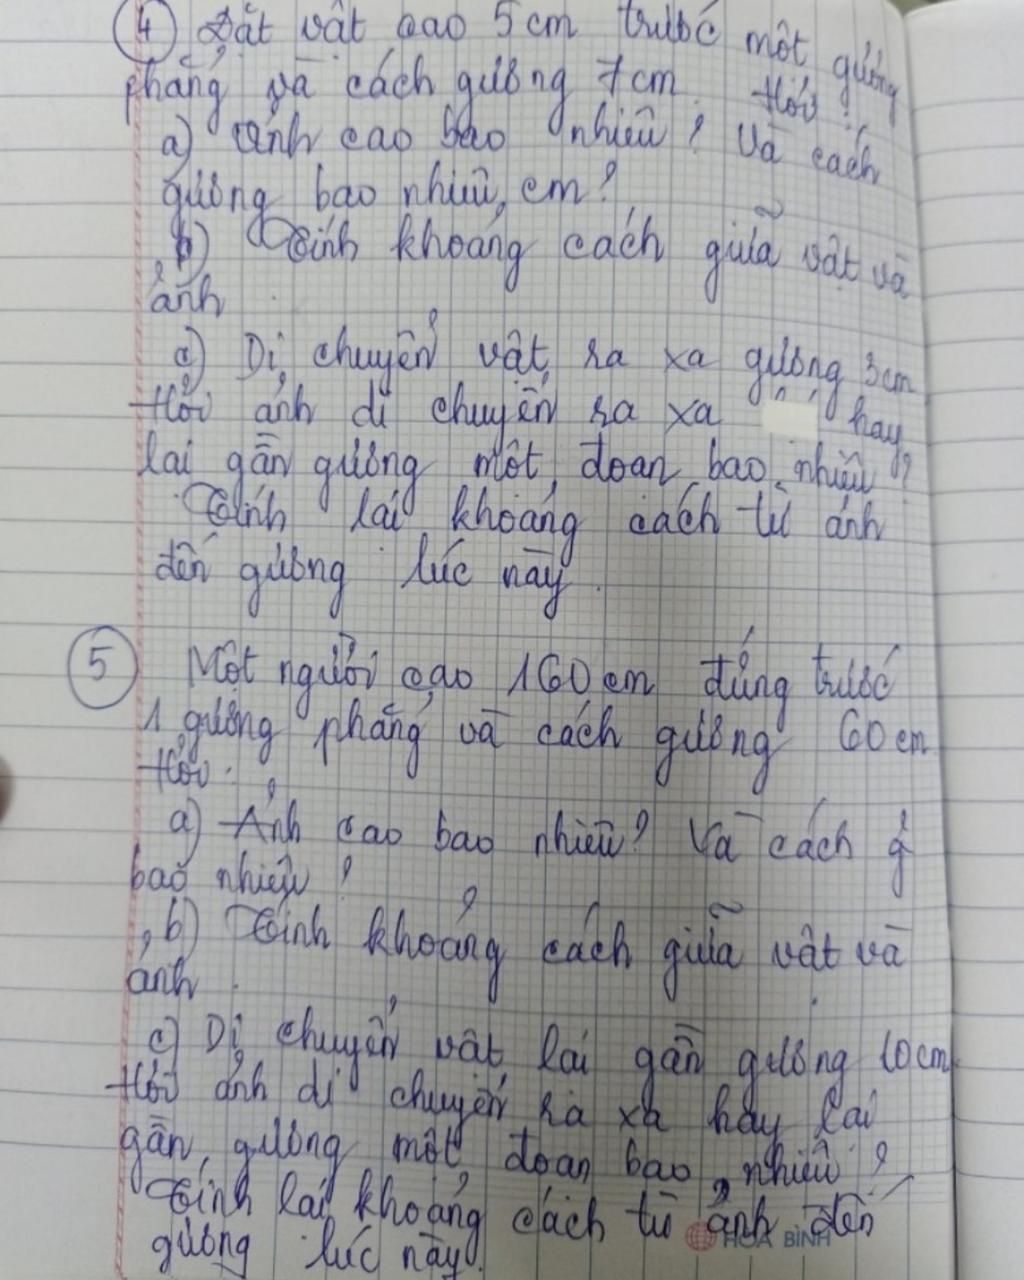 4 Đặt vật cao 5cm trước một gương
phẳng và cách gương 7cm. Hỏi:
a) Ảnh cao bao nhiêu? Và cách
gương bao nhiêu cm?
b) Tính khoảng cách giữa vật và
ảnh.
c) Di chuyển vật ra xa gương 3cm
Hỏi ảnh di chuyển ra xa hay
lại gần gương một đoạn bao nhiêu?
Tính lại khoảng cách từ ảnh
đến gương lúc này.
5 Một người cao 160cm đứng trước
1 gương phẳng và cách gương 60cm
Hỏi:
a) Ảnh cao bao nhiêu? Và cách g
bao nhiêu?
b) Tính khoảng cách giữa vật và
ảnh.
c) Di chuyển vật lại gần gương 10cm.
Hỏi ảnh di chuyển ra xa hay lại
gần gương một đoạn bao nhiêu?
Tính lại khoảng cách từ ảnh đến
gương lúc này.
HOA BINH